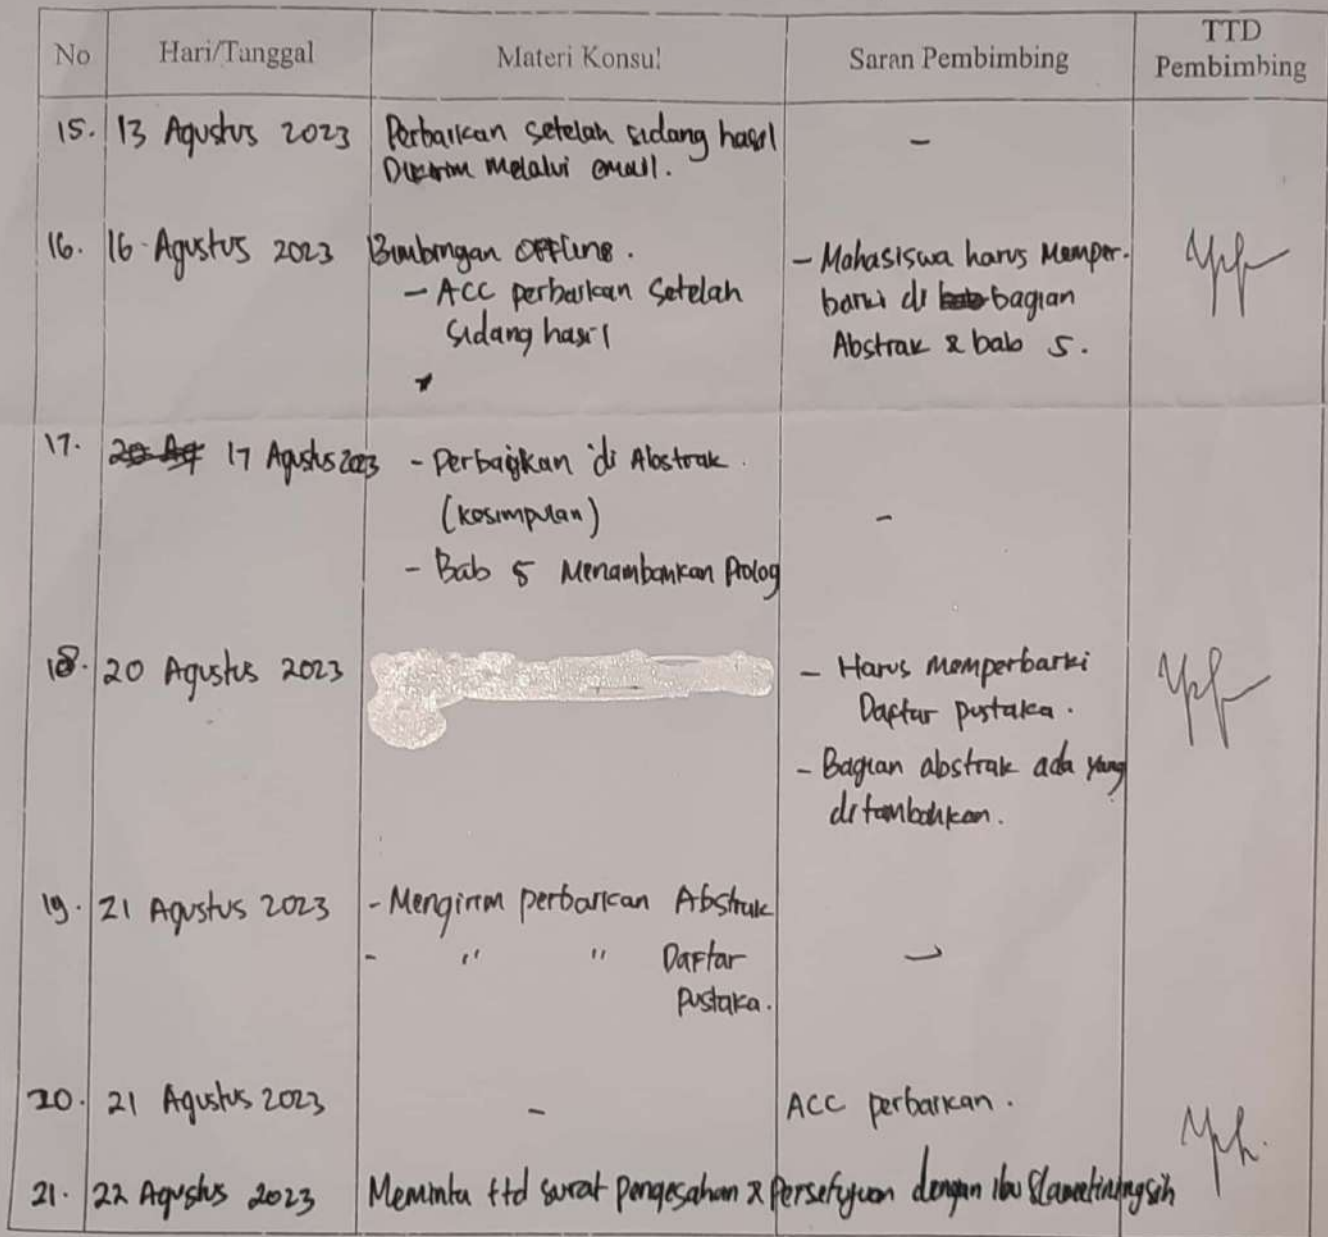 No Hari/Tanggal Materi Konsul Saran Pembimbing TTD Pembimbing
15. 13 Agustus 2023 Perbaikan setelah sidang hasil -
Dikirim Melalui email.
16. 16 Agustus 2023 Bimbingan Offline. - Mahasiswa harus Memper-
- ACC perbaikan Setelah baiki di bagian
Sidang hasil Abstrak & bab 5.
17. 17 Agustus 2023 - Perbaikan di Abstrak.
(Kesimpulan) -
- Bab 5 Menambahkan Prolog
18. 20 Agustus 2023 - Harus memperbaiki
Daftar pustaka.
- Bagian abstrak ada yang
ditambahkan.
19. 21 Agustus 2023 - Mengirim perbaikan Abstrak
- " " Daftar -
Pustaka.
20. 21 Agustus 2023 - ACC perbaikan.
21. 22 Agustus 2023 Meminta ttd surat pengesahan & Persetujuan dengan ibu Slametiningsih